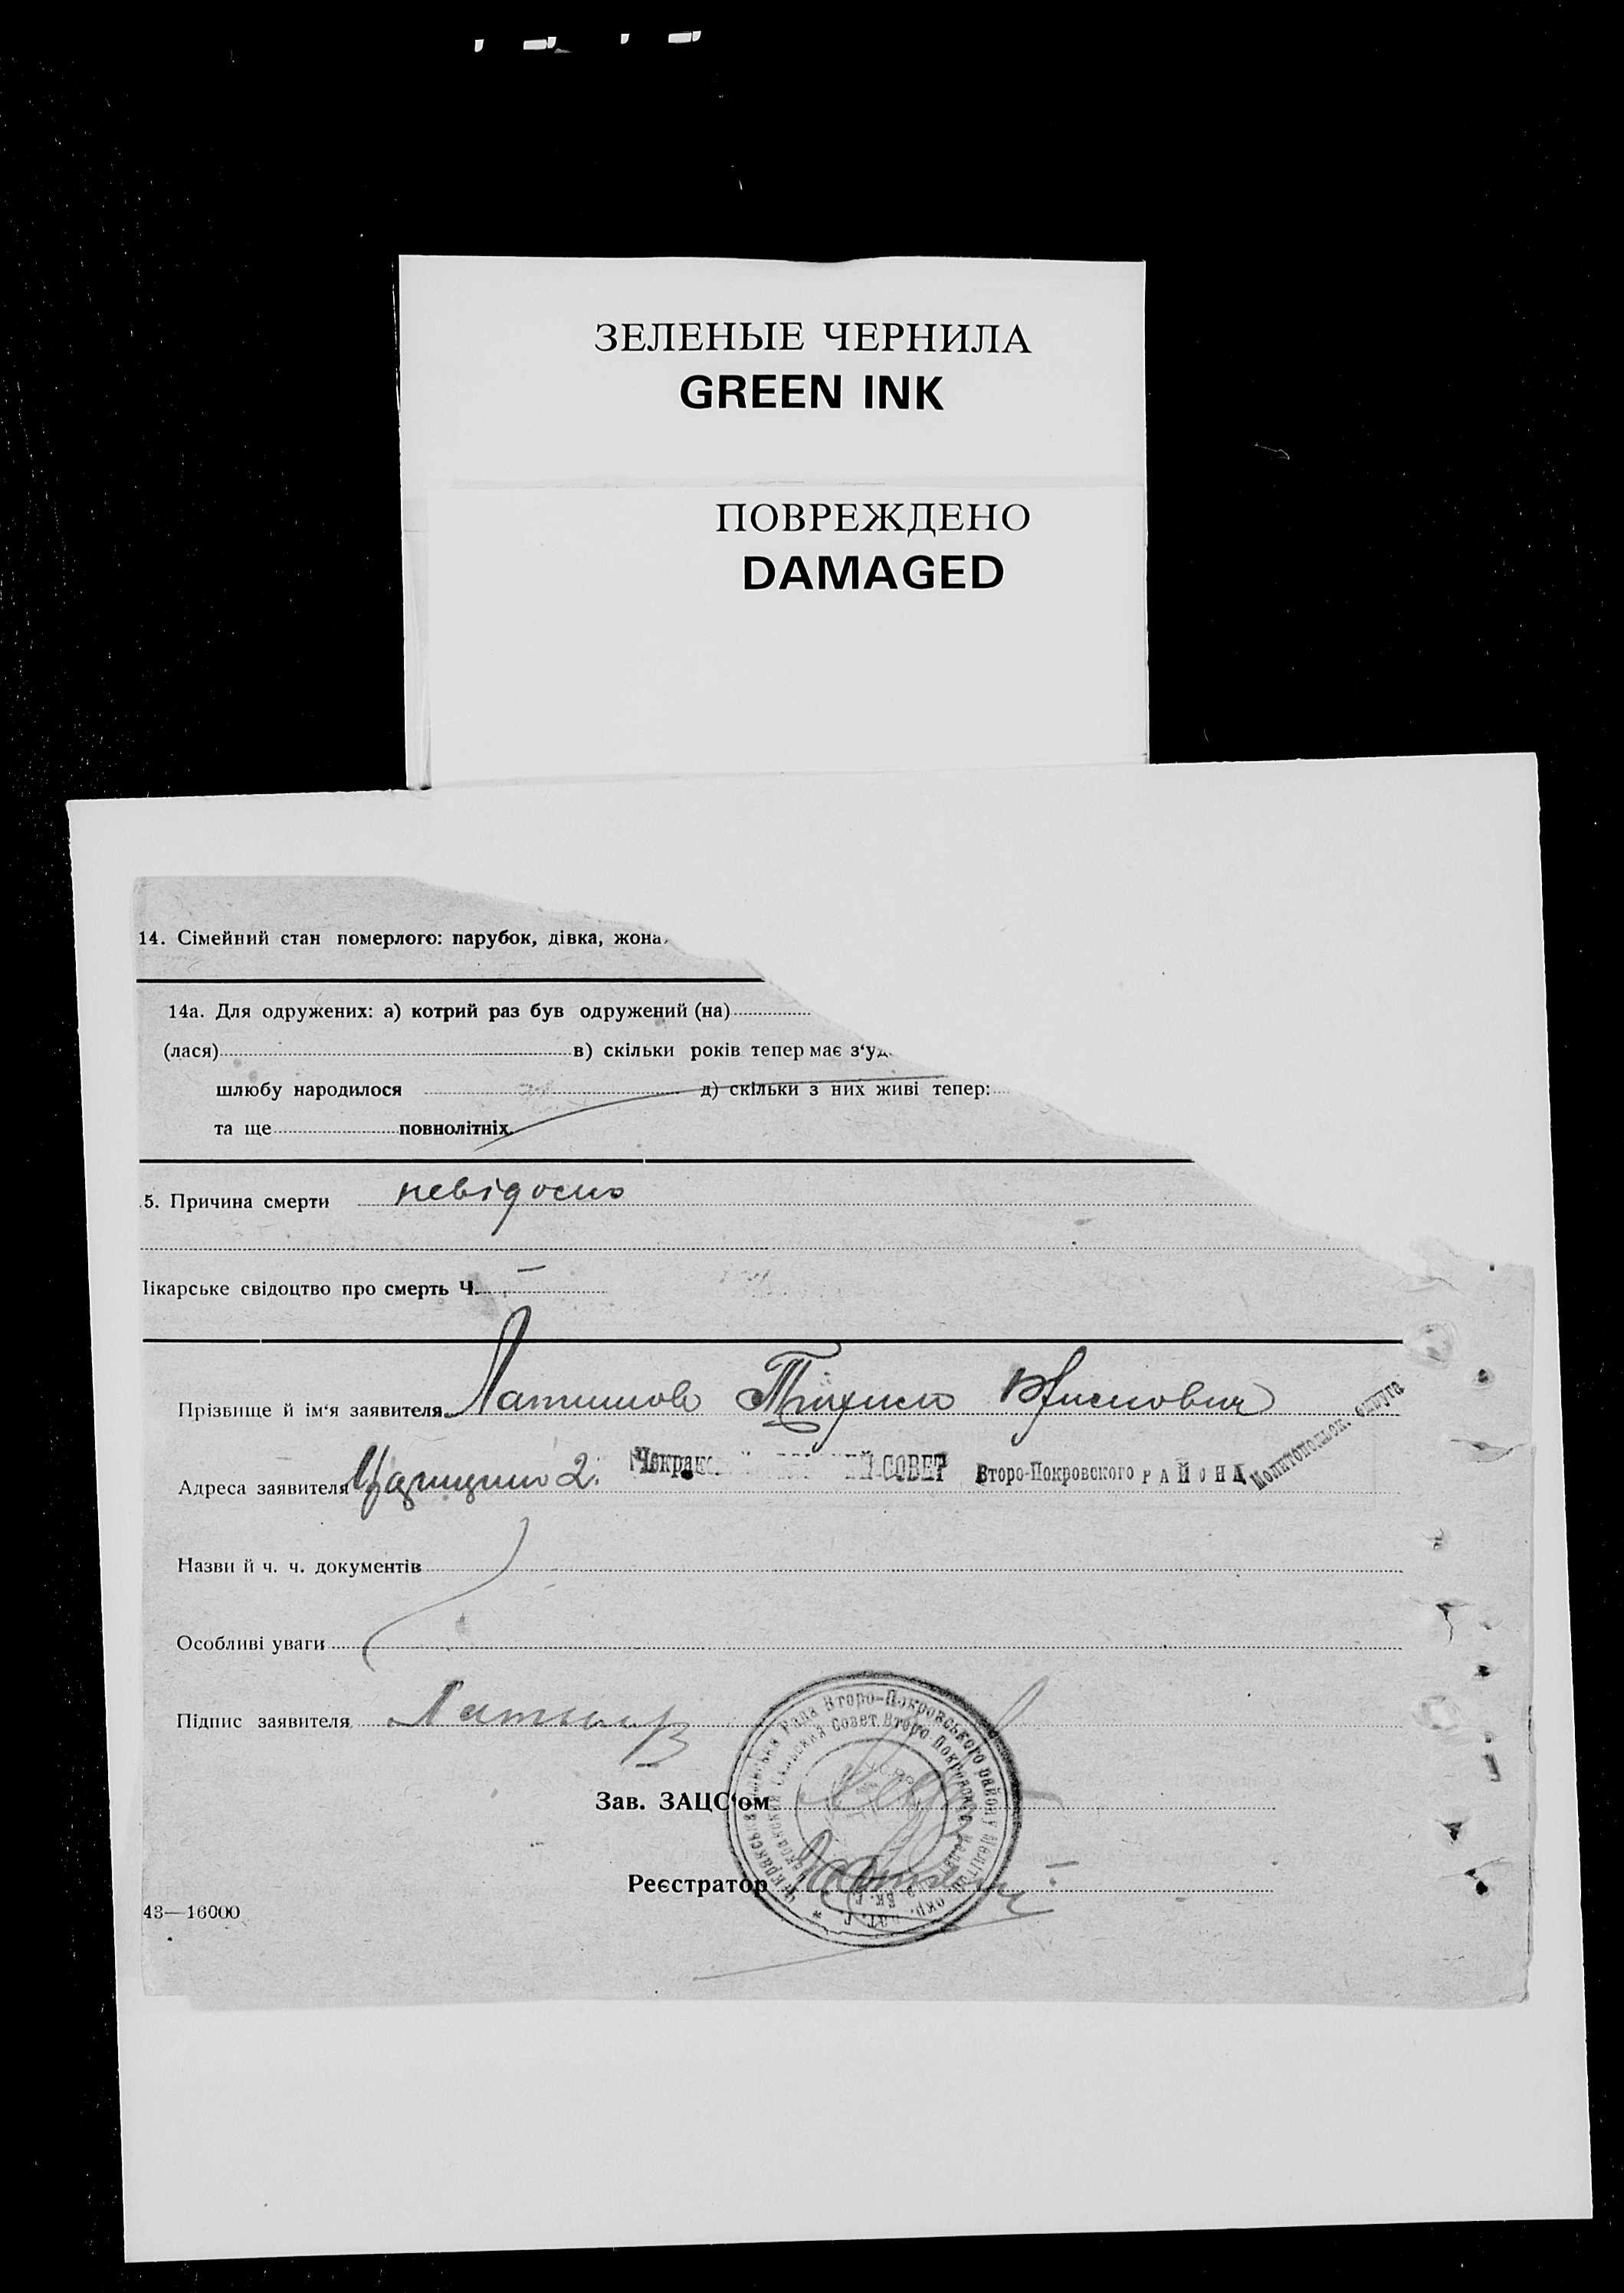 ЗЕЛЕНЫЕ ЧЕРНИЛА
GREEN INK
ПОВРЕЖДЕНО
DAMAGED
14. Сімейний стан померлого: парубок, дівка, жона
14а. Для одружених: а) котрий раз був одружений (на)
(лася) в) скільки років тепер має з'уд
шлюбу народилося д) скільки з них живі тепер:
та ще повнолітніх.
5. Причина смерти невідомо
лікарське свідоцтво про смерть Ч. —
Прізвище й ім'я заявителя
Адреса заявителя 2. Чокрак СОВЕТ Второ-Покровского РАЙОНА Мелитопольск. округа
Назви й ч. ч. документів
Особливі уваги
Підпис заявителя
Рада Второ-Покровського району
Зав. ЗАЦС'ом
Реєстратор
43—16000